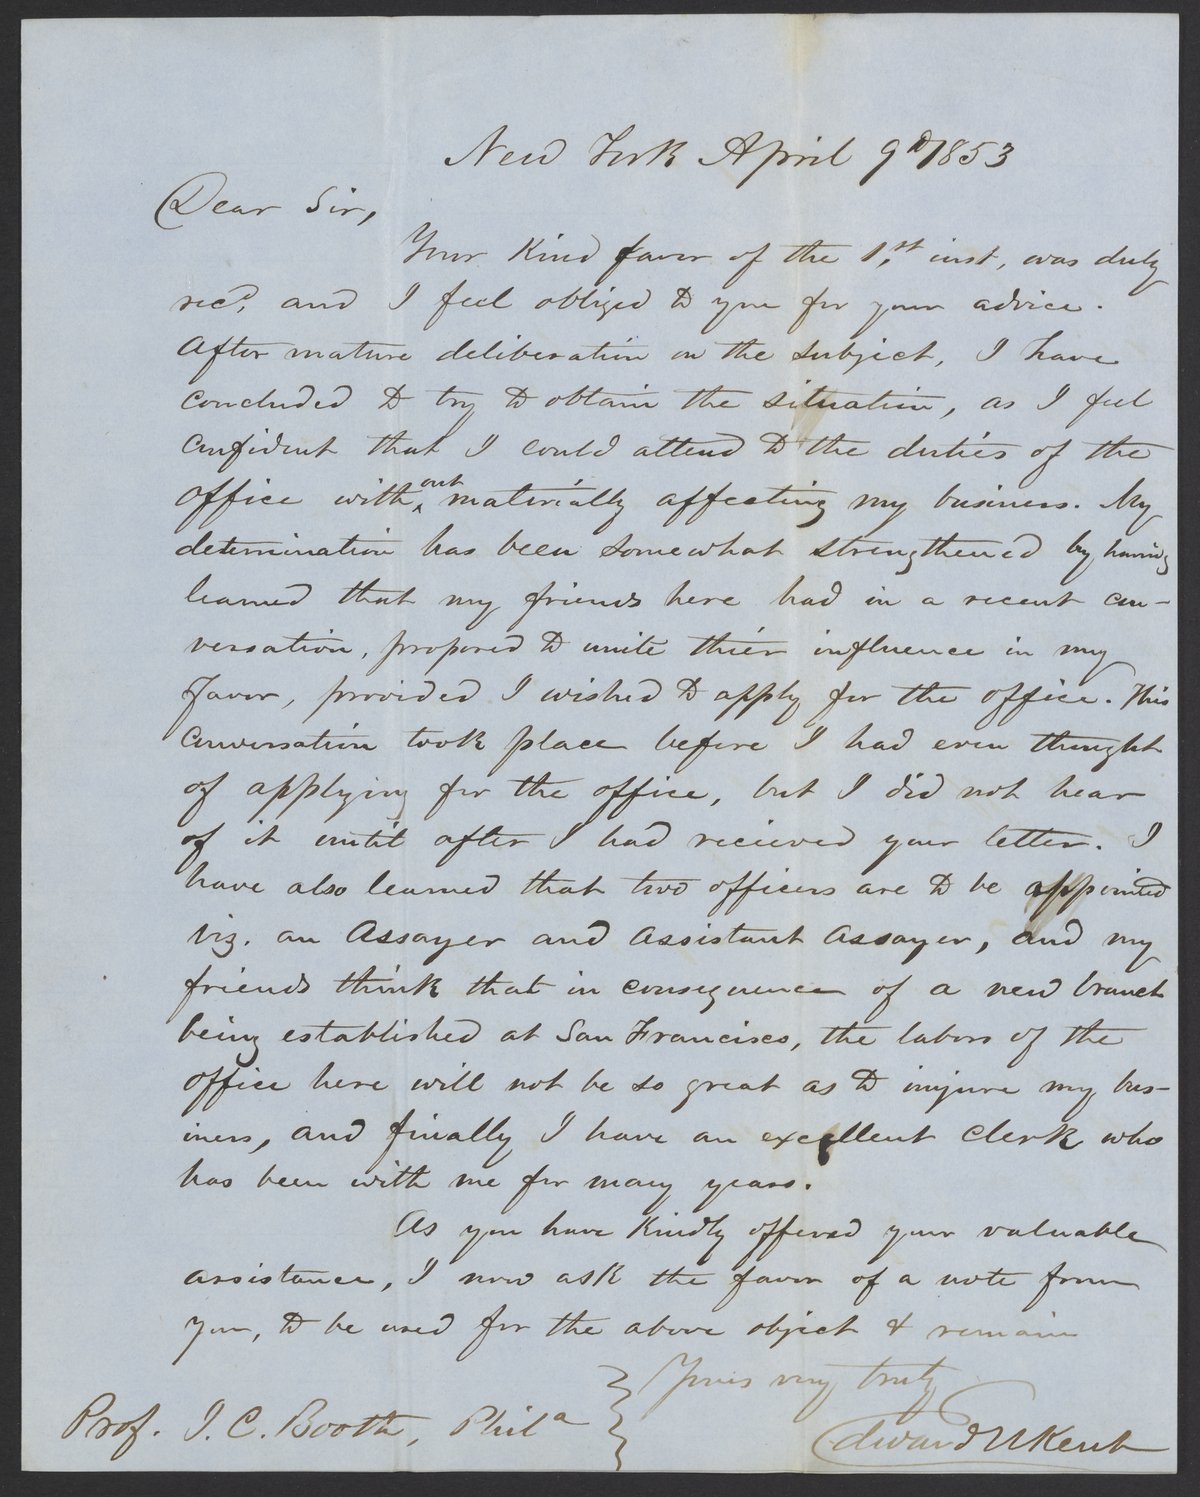 New York April 9th 1853
Dear Sir,
Your Kind favor of the 1st inst, was duly
recd. and I feel obliged to you for your advice.
After mature deliberation on the subject, I have
concluded to try to obtain the situation, as I feel
confident that I could attend to the duties of the
office without materially affecting my business. My
determination has been somewhat strengthened by having
learned that my friends here had in a recent con-
versation, proposed to unite thier influence in my
favor, provided I wished to apply for the office. This
conversation took place before I had even thought
of applying for the office, but I did not hear
of it until after I had recieved your letter. I
have also learned that two officers are to be appointed
viz. an Assayer and Assistant Assayer, and my
friends think that in consequence of a new branch
being established at San Francisco, the labors of the
office here will not be so great as to injure my bus-
iness, and finally I have an excellent Clerk who
has been with me for many years.
As you have Kindly offered your valuable
assistance, I now ask the favor of a note from
you, to be used for the above object & remain
Yours very truly
Prof. J. C. Booth, Phila Edward N Kent